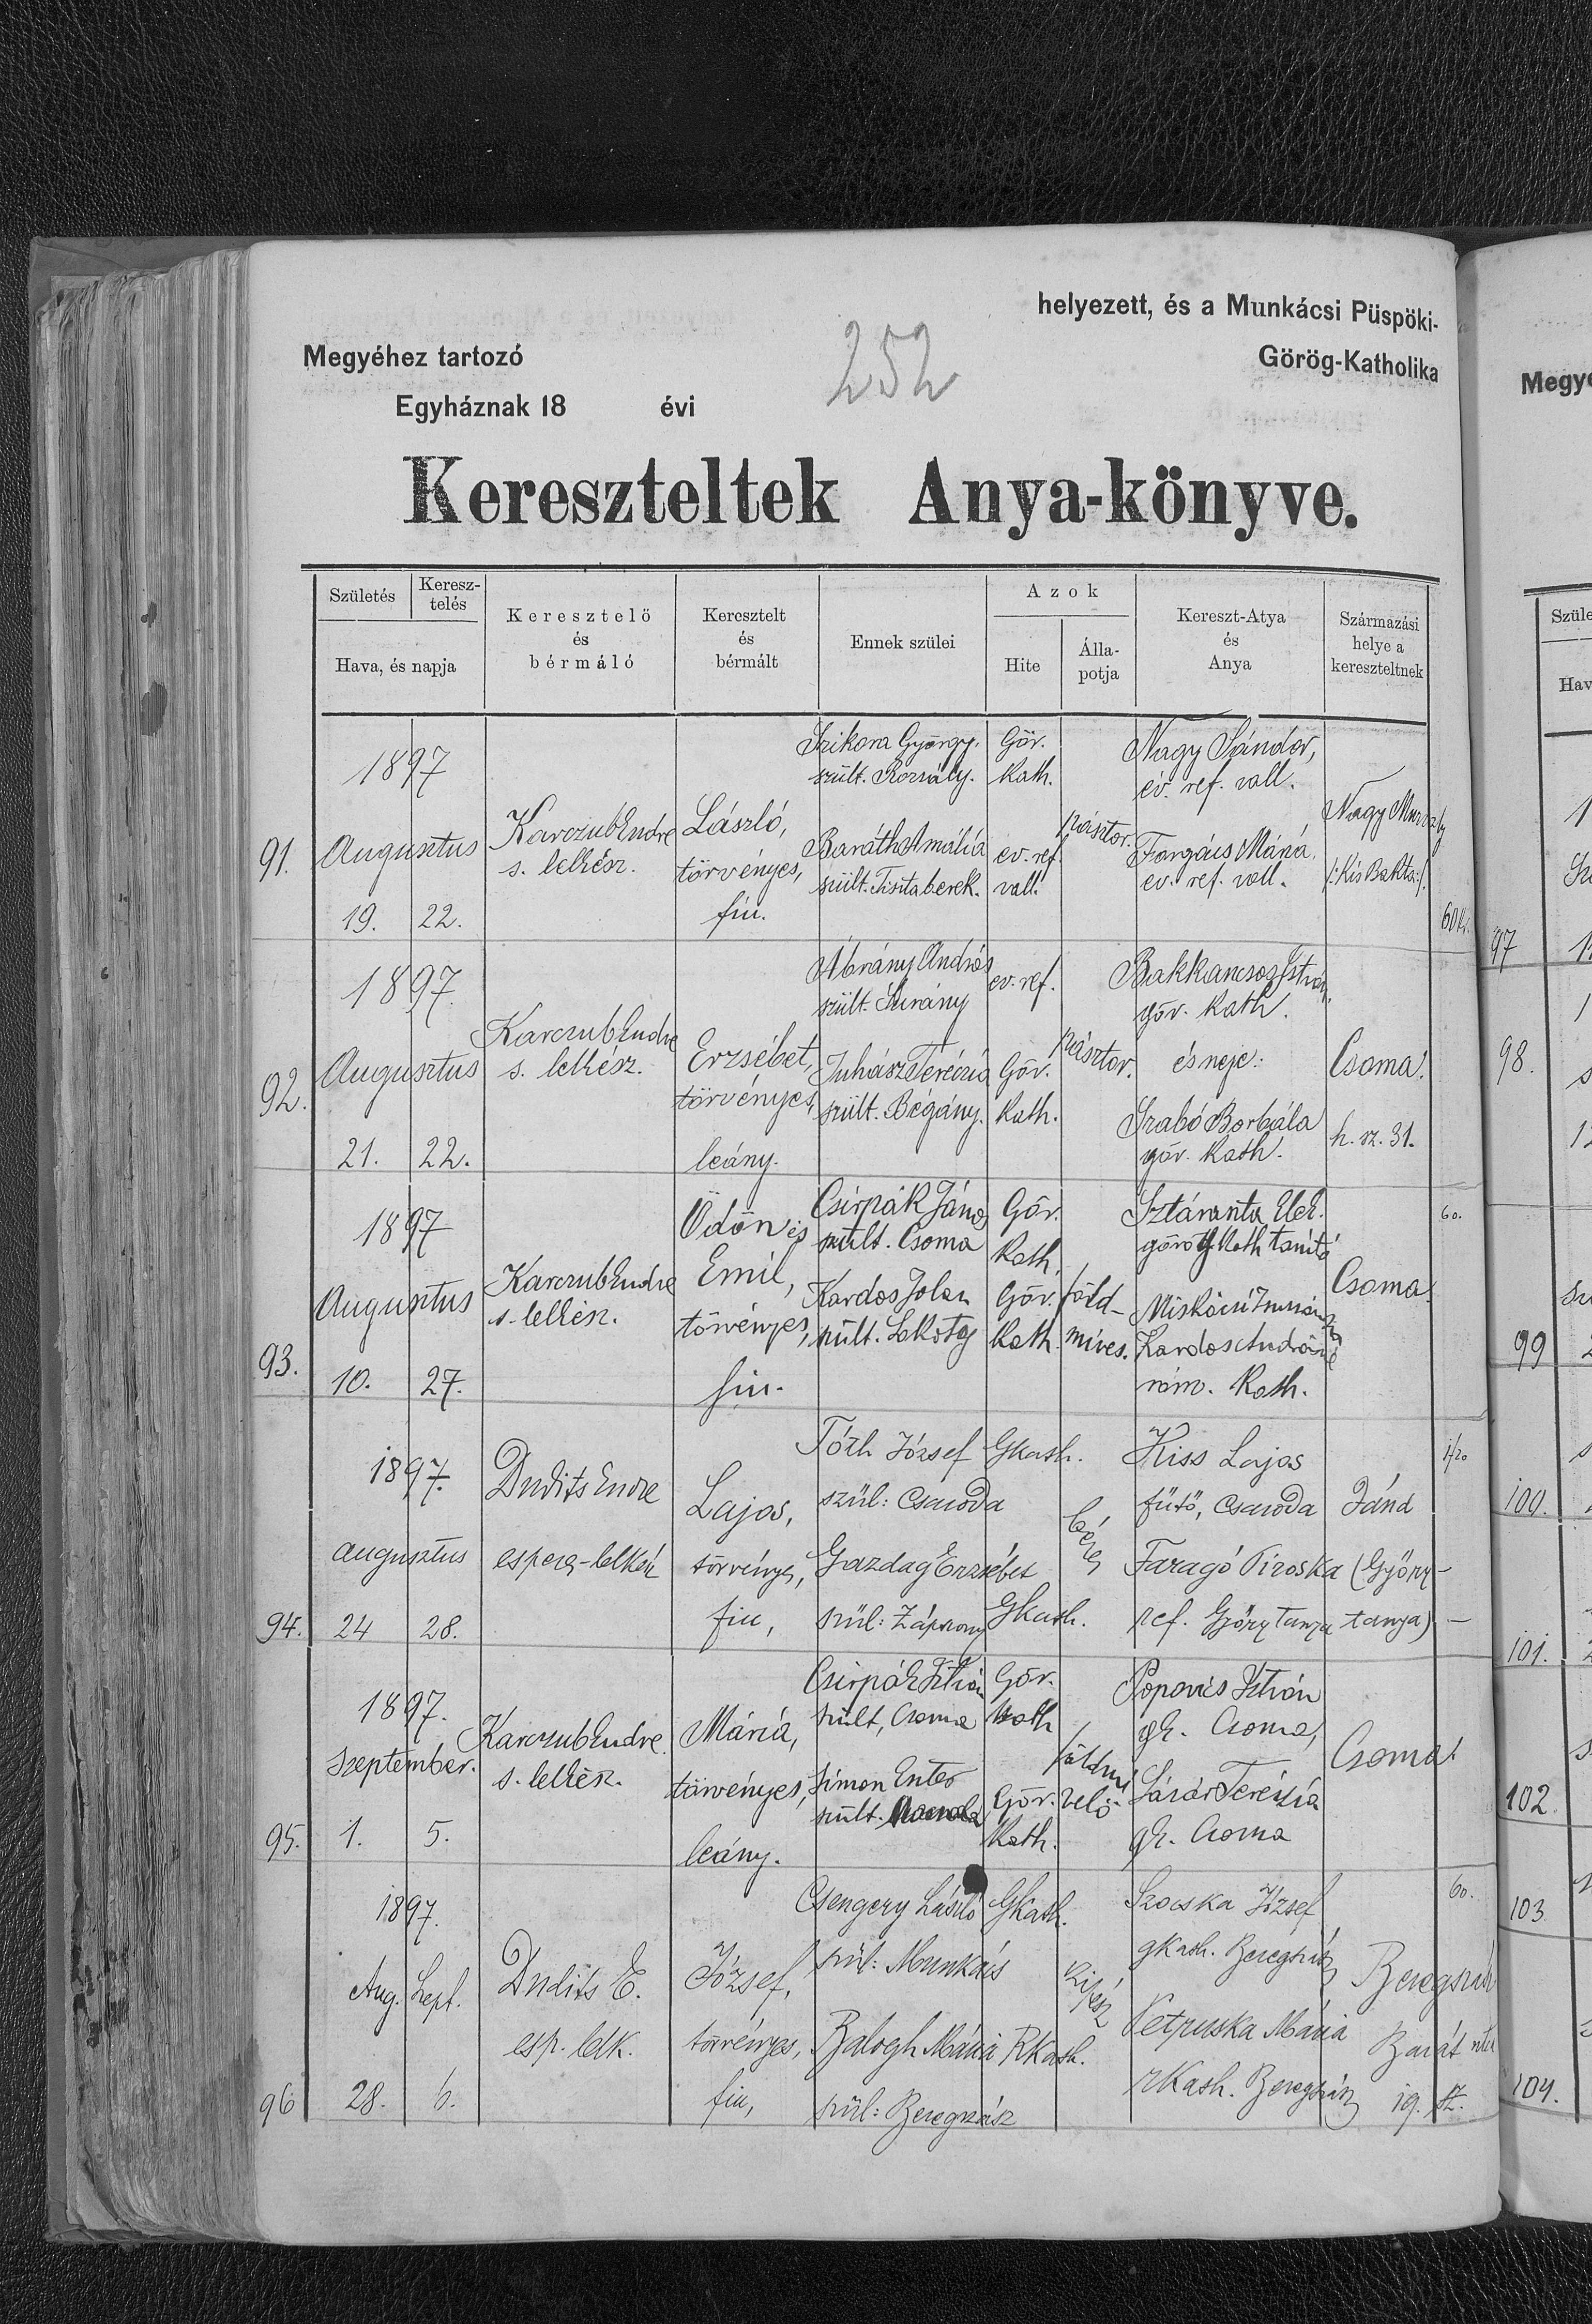 helyezett, és a Munkácsi Püspöki-
Megyéhez tartozó
Görög-Katholika
Egyháznak 18 évi
252
Kereszteltek Anya-könyve.
Születés
Keresz-
telés
Hava, és napja
Keresztelő
és
bérmáló
Keresztelt
és
bérmált
Ennek szülei
Azok
Hite
Álla-
potja
Kereszt-Atya
és
Anya
Származási
helye a
kereszteltnek
91.
1897
Augusztus
19. 22.
Karczub Endre
s. lelkész.
László,
törvényes,
fiu.
Szikora György.
szült. Rozsály.
Baráth Amália
szült. Tisztaberek.
Gör.
kath.
ev. ref.
vall.
pásztor.
Nagy Sándor,
ev. ref. vall.
Forgács Mária.
ev. ref. vall.
Nagy Muzsaly
/:Kis Bakta:/.
60 kr.
92.
1897.
Augusztus
21. 22.
Karczub Endre
s. lelkész.
Erzsébet,
törvényes,
leány.
Ábrány András
szült. Surány
Juhász Terézia
szült. Bégány.
ev. ref.
Gör.
kath.
pásztor.
Bakkancsos István.
gör. kath.
és neje:
Szabó Borbála
gör. kath.
Csoma.
h. sz. 31.
93.
1897
Augusztus
10. 27.
Karczub Endre
s. lelkész.
Ödön és
Emil,
törvényes,
fiu.
Csirpák János
szült. Csoma
Kardos Jolan
szült.
Gör.
kath.
Gör.
kath.
föld-
míves.
Elek.
görög kath tanító
Kardos Andrásné
róm. kath.
Csoma.
60.
94.
1897.
augusztus
24 28.
Dudits Endre
esperes-lelkész
Lajos,
törvényes,
fiu,
Tóth József
szül: Csaroda
Gazdag Erzsébet
szül: Zápszony
Gkath.
Gkath.
béres
Kiss Lajos
fütő, Csaroda
Faragó Piroska
ref. Győry tanya
Jánd
(Győry-
tanya)
1/20
95.
1897.
Szeptember.
1. 5.
Karczub Endre
s. lelkész.
Mária,
törvényes,
leány.
Csirpák István
szült, Csoma
Simon Eszter
szült.
Gör.
kath
Gör.
kath.
földmi
velő
Popovics István
gk. Csoma,
Lázár Terézia
gk. Csoma
Csoma.
96
1897.
Aug. Sept.
28. 6.
Dudits E.
esp. lelk.
József,
törvényes,
fiu,
Csengery László
szül: Munkács
Balogh Mária
szül: Beregszász
Gkath.
Rkath.
Szocska József
gkath. Beregszász
Petruska Mária
rkath. Beregszász
Beregszász
Barát utca
19. sz.
60.
Megye
Szüle
Hav
97
98.
99
100.
101.
102.
103
104.